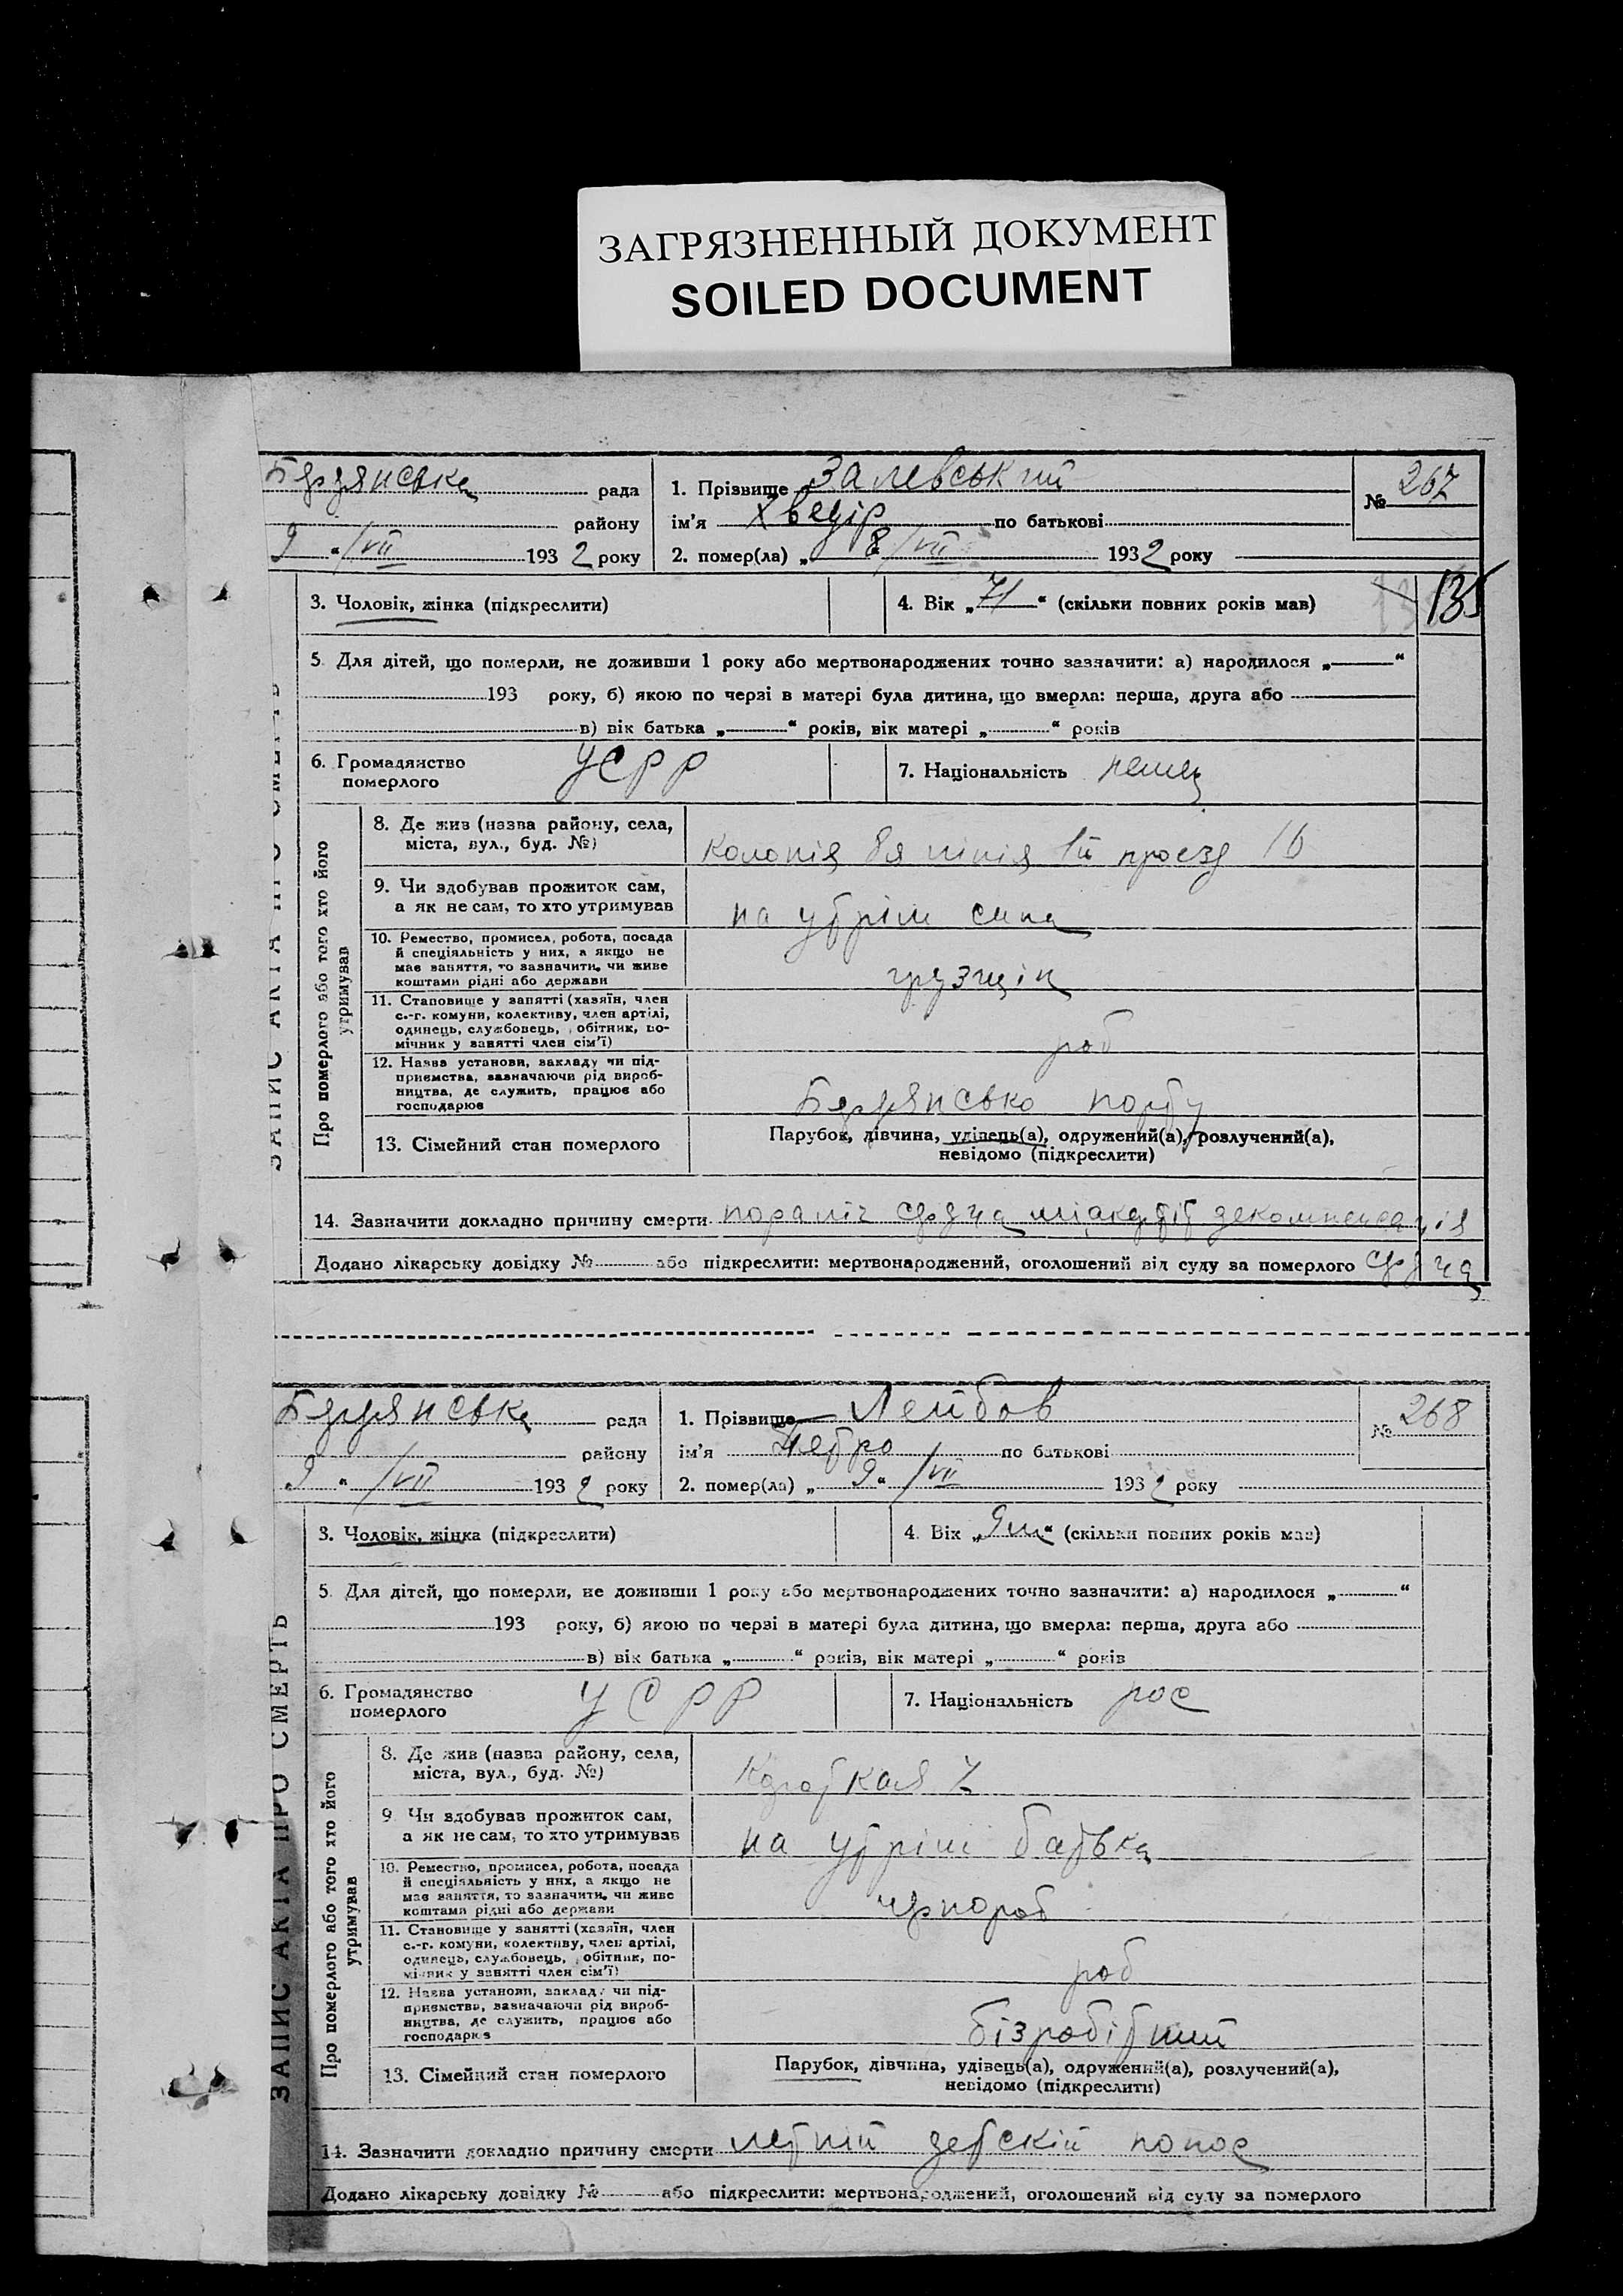 ЗАГРЯЗНЕННЫЙ ДОКУМЕНТ
SOILED DOCUMENT
Бердянська рада
району
9 “ /VII 1932 року
1. Прізвище Залевський
ім’я Хведір по батькові
2. помер(ла) „ 8 /VII 1932 року
№ 267
3. Чоловік, жінка (підкреслити)
4. Вік „71“ (скільки повних років мав)
135
5. Для дітей, що померли, не доживши 1 року або мертвонароджених точно зазначити: а) народилося „ “
193 року, б) якою по черзі в матері була дитина, що вмерла: перша, друга або
в) вік батька „ “ років, вік матері „ “ років
6. Громадянство
померлого
УСРР
7. Національність немец
ЗАПИС АКТА ПРО СМЕРТЬ
Про померлого або того хто його
утримував
8. Де жив (назва району, села,
міста, вул., буд. №)
Колонія 8я лінія 1й проезд 16
9. Чи здобував прожиток сам,
а як не сам, то хто утримував
на утрім сина
10. Ремество, промисел, робота, посада
й спеціяльність у них, а якщо не
має заняття, то зазначити, чи живе
коштами рідні або держави
грузщік
11. Становище у занятті (хазяїн, член
с.-г. комуни, колективу, член артілі,
одинець, службовець, робітник, по-
мічник у занятті член сім’ї)
роб
12. Назва установи, закладу чи під-
приємства, зазначаючи рід вироб-
ництва, де служить, працює або
господарює
Бердянсько порту
13. Сімейний стан померлого
Парубок, дівчина, удівець(а), одружений(а), розлучений(а),
невідомо (підкреслити)
14. Зазначити докладно причину смерти параліч сердца декомпенсація
Додано лікарську довідку № або підкреслити: мертвонароджений, оголошений від суду за померлого сердца
Бердянська рада
району
9 “ /VII 1932 року
1. Прізвище Лейбов
ім’я Петро по батькові
2. помер(ла) „ 9 “ /VII 1932 року
№ 268
3. Чоловік, жінка (підкреслити)
4. Вік „9м“ (скільки повних років мав)
5. Для дітей, що померли, не доживши 1 року або мертвонароджених точно зазначити: а) народилося „ “
193 року, б) якою по черзі в матері була дитина, що вмерла: перша, друга або
в) вік батька „ “ років, вік матері „ “ років
6. Громадянство
померлого
УСРР
7. Національність рос
ЗАПИС АКТА ПРО СМЕРТЬ
Про померлого або того хто його
утримував
8. Де жив (назва району, села,
міста, вул., буд. №)
Короткая 7
9. Чи здобував прожиток сам,
а як не сам, то хто утримував
на утрім батька
10. Ремество, промисел, робота, посада
й спеціяльність у них, а якщо не
має заняття, то зазначити, чи живе
коштами рідні або держави
чернороб
11. Становище у занятті (хазяїн, член
с.-г. комуни, колективу, член артілі,
одинець, службовець, робітник, по-
мічник у занятті член сім’ї)
роб
12. Назва установи, закладу чи під-
приємства, зазначаючи рід вироб-
ництва, де служить, працює або
господарює
бізробітний
13. Сімейний стан померлого
Парубок, дівчина, удівець(а), одружений(а), розлучений(а),
невідомо (підкреслити)
14. Зазначити докладно причину смерти летній детскій понос
Додано лікарську довідку № або підкреслити: мертвонароджений, оголошений від суду за померлого